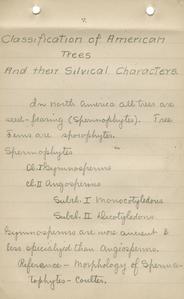 Classification of American
Trees
And their Silvical Characters.
In North America all trees are
seed-bearing (Spermophytes). Tree
Ferns are sporophytes.
Spermophytes
Cl. I Gymnosperms
Cl. II Angiosperms
Subcl. I Monocotyledons
Subcl. II Dicotyledons
Gymnosperms are more ancient &
less specialized than Angiosperms.
Reference - Morphology of Sperma-
tophytes - Coulter.